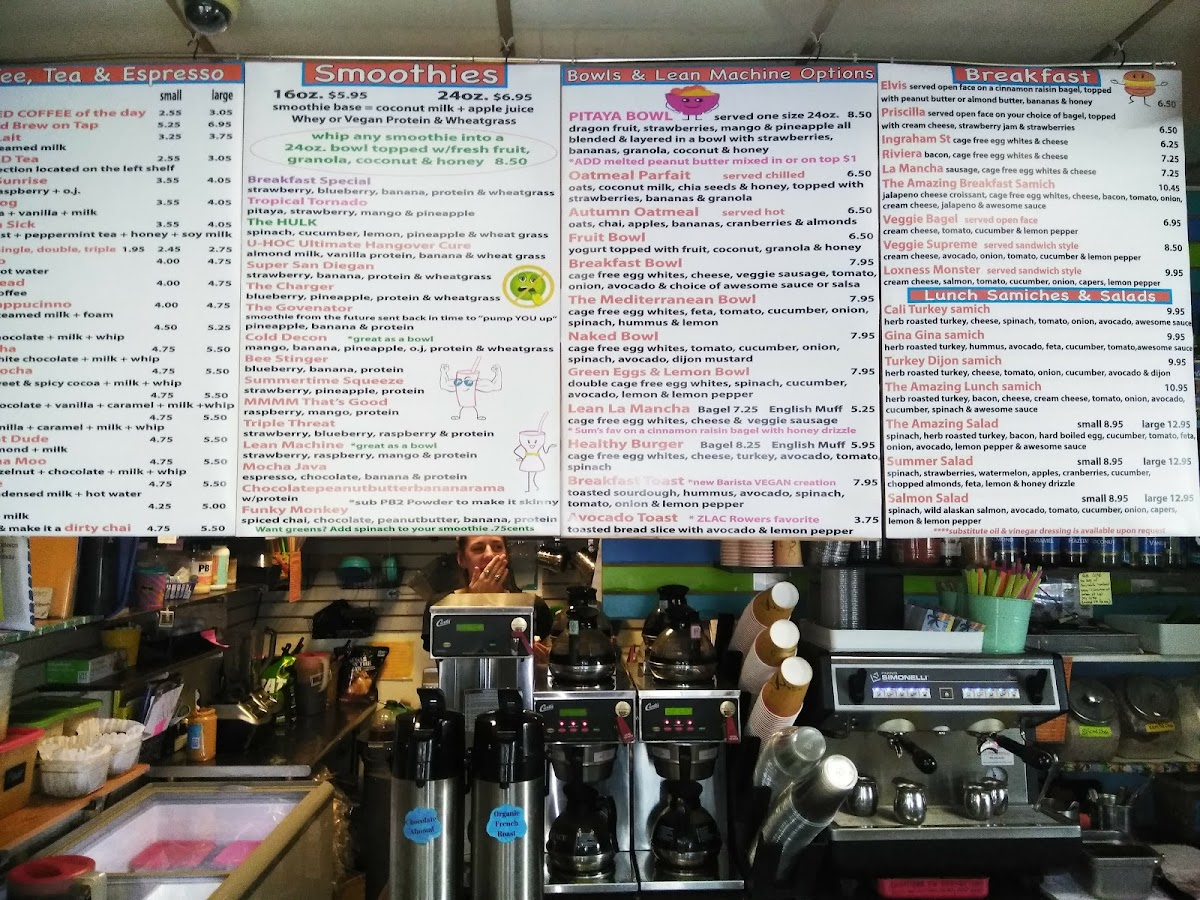 ee, Tea & Espresso
small large
ED COFFEE of the day 2.55 3.05
d Brew on Tap 5.25 6.95
Lait 3.25 3.75
eamed milk
D Tea 2.55 3.05
ection located on the left shelf
Sunrise 3.55 4.05
aspberry + o.j.
og 3.55 4.05
a + vanilla + milk
n Sick 3.55 4.05
st + peppermint tea + honey + soy milk
single, double, triple 1.95 2.45 2.75
o 4.00 4.75
ot water
ead 4.00 4.75
offee
appuccino 4.00 4.75
eamed milk + foam
4.50 5.25
hocolate + milk + whip
ha 4.75 5.50
hite chocolate + milk + whip
ocha 4.75 5.50
eet & spicy cocoa + milk + whip
4.75 5.50
ocolate + vanilla + caramel + milk +whip
4.75 5.50
nilla + caramel + milk + whip
t Dude 4.75 5.50
mond + milk
na Moo 4.75 5.50
zelnut + chocolate + milk + whip
e 4.75 5.50
densed milk + hot water
4.25 5.00
milk
& make it a dirty chai 4.75 5.50
Smoothies
16oz. $5.95 24oz. $6.95
smoothie base = coconut milk + apple juice
Whey or Vegan Protein & Wheatgrass
whip any smoothie into a
24oz. bowl topped w/fresh fruit,
granola, coconut & honey 8.50
Breakfast Special
strawberry, blueberry, banana, protein & wheatgrass
Tropical Tornado
pitaya, strawberry, mango & pineapple
The HULK
spinach, cucumber, lemon, pineapple & wheat grass
U-HOC Ultimate Hangover Cure
almond milk, vanilla protein, banana & wheat grass
Super San Diegan
strawberry, banana, protein & wheatgrass
The Charger
blueberry, pineapple, protein & wheatgrass
The Govenator
smoothie from the future sent back in time to "pump YOU up"
pineapple, banana & protein
Cold Decon *great as a bowl
mango, banana, pineapple, o.j, protein & wheatgrass
Bee Stinger
blueberry, banana, protein
Summertime Squeeze
strawberry, pineapple, protein
MMMM That's Good
raspberry, mango, protein
Triple Threat
strawberry, blueberry, raspberry & protein
Lean Machine *great as a bowl
strawberry, raspberry, mango & protein
Mocha Java
espresso, chocolate, banana & protein
Chocolatepeanutbutterbananarama
w/protein *sub PB2 Powder to make it skinny
Funky Monkey
spiced chai, chocolate, peanutbutter, banana, protein
Want greens? Add spinach to your smoothie .75cents
Bowls & Lean Machine Options
PITAYA BOWL served one size 24oz. 8.50
dragon fruit, strawberries, mango & pineapple all
blended & layered in a bowl with strawberries,
bananas, granola, coconut & honey
*ADD melted peanut butter mixed in or on top $1
Oatmeal Parfait served chilled 6.50
oats, coconut milk, chia seeds & honey, topped with
strawberries, bananas & granola
Autumn Oatmeal served hot 6.50
oats, chai, apples, bananas, cranberries & almonds
Fruit Bowl 6.50
yogurt topped with fruit, coconut, granola & honey
Breakfast Bowl 7.95
cage free egg whites, cheese, veggie sausage, tomato,
onion, avocado & choice of awesome sauce or salsa
The Mediterranean Bowl 7.95
cage free egg whites, feta, tomato, cucumber, onion,
spinach, hummus & lemon
Naked Bowl 7.95
cage free egg whites, tomato, cucumber, onion,
spinach, avocado, dijon mustard
Green Eggs & Lemon Bowl 7.95
double cage free egg whites, spinach, cucumber,
avocado, lemon & lemon pepper
Lean La Mancha Bagel 7.25 English Muff 5.25
cage free egg whites, cheese & veggie sausage
* Sum's fav on a cinnamon raisin bagel with honey drizzle
Healthy Burger Bagel 8.25 English Muff 5.95
cage free egg whites, cheese, turkey, avocado, tomato,
spinach
Breakfast Toast *new Barista VEGAN creation 7.95
toasted sourdough, hummus, avocado, spinach,
tomato, onion & lemon pepper
Avocado Toast * ZLAC Rowers favorite 3.75
toasted bread slice with avocado & lemon pepper
Breakfast
Elvis served open face on a cinnamon raisin bagel, topped
with peanut butter or almond butter, bananas & honey 6.50
Priscilla served open face on your choice of bagel, topped
with cream cheese, strawberry jam & strawberries 6.50
Ingraham St cage free egg whites & cheese 6.25
Riviera bacon, cage free egg whites & cheese 7.25
La Mancha sausage, cage free egg whites & cheese 7.25
The Amazing Breakfast Samich 10.45
jalapeno cheese croissant, cage free egg whites, cheese, bacon, tomato, onion,
cream cheese, jalapeno & awesome sauce
Veggie Bagel served open face 6.95
cream cheese, tomato, cucumber & lemon pepper
Veggie Supreme served sandwich style 8.50
cream cheese, avocado, onion, tomato, cucumber & lemon pepper
Loxness Monster served sandwich style 9.95
cream cheese, salmon, tomato, cucumber, onion, capers, lemon pepper
Lunch Samiches & Salads
Cali Turkey samich 9.95
herb roasted turkey, cheese, spinach, tomato, onion, avocado, awesome sauce
Gina Gina samich 9.95
herb roasted turkey, hummus, avocado, feta, cucumber, tomato,awesome sauce
Turkey Dijon samich 9.95
herb roasted turkey, cheese, tomato, onion, cucumber, avocado & dijon
The Amazing Lunch samich 10.95
herb roasted turkey, bacon, cheese, cream cheese, tomato, onion, avocado,
cucumber, spinach & awesome sauce
The Amazing Salad small 8.95 large 12.95
spinach, herb roasted turkey, bacon, hard boiled egg, cucumber, tomato, feta,
onion, avocado, lemon pepper & awesome sauce
Summer Salad small 8.95 large 12.95
spinach, strawberries, watermelon, apples, cranberries, cucumber,
chopped almonds, feta, lemon & honey drizzle
Salmon Salad small 8.95 large 12.95
spinach, wild alaskan salmon, avocado, tomato, cucumber, onion, capers,
lemon & lemon pepper
****substitute oil & vinegar dressing is available upon request
PB
Curtis
Curtis
Curtis
SIMONELLI
Chocolate
Almond
Organic
French
Roast